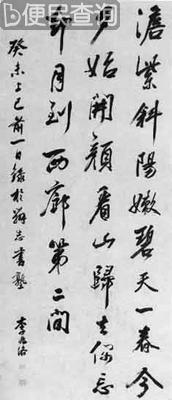 便民查询
澹紫斜陽嫩碧天一春今
夕始開顏看山歸去儂忘
却月到西廊第二間
癸未上巳前一日錄於辨志書塾
李兆洛